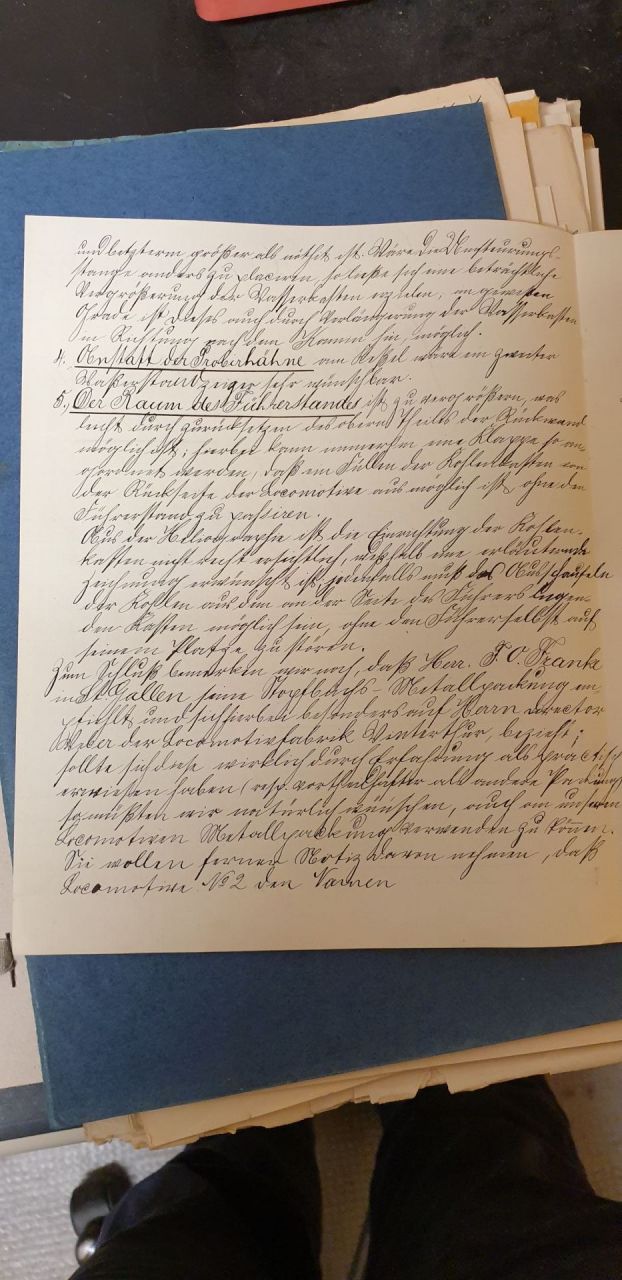 und letzterm größer als nöthig ist. Wäre die Umsteurungs-
stange anders zu placiren, so ließe sich eine beträchtliche
Vergrößerung der Wasserkasten erzielen; in gewissen
Grade ist dieses auch durch Verlängerung der Wasserkasten
in Richtung nach dem Kamin hin, möglich.
4. Anstatt der Probirhähne am Kessel wäre ein zweiter
Wasserstandzeiger sehr wünschbar.
5. Der Raum des Führerstandes ist zu vergrößern, was
leicht durch Zurücksetzen des obern Theils der Rückwand
möglich ist; hierbei kann immerhin eine Klappe so an-
geordnet werden, daß ein Füllen der Kohlenkasten von
der Rückseite der Locomotive aus möglich ist, ohne den
Führerstand zu passiren.
Aus der Heliographie ist die Einrichtung der Kohlen-
kasten nicht recht ersichtlich, weßhalb eine erläuternde
Zeichnung erwünscht ist, jedenfalls muß das Ausschaufeln
der Kohlen aus dem an der Seite des Führers liegen-
den Kasten möglich sein, ohne den Führer selbst auf
seinem Platze zu stören.
Zum Schluß bemerken wir noch, daß Herr F. O. Franke
in St. Gallen seine Stopfbüchs-Metallpackung em-
pfiehlt und sich hierbei besonders auf Herrn Director
Weber der Locomotivfabrik Winterthur, bezieht;
sollte sich diese wirklich durch Erfahrung als practisch
erwiesen haben (resp. vortheilhafter als andere Packung)
so müßten wir natürlich wünschen, auch an unseren
Locomotiven Metallpackung verwenden zu können.
Sie wollen ferner Notiz davon nehmen, daß
Locomotive No 2 den Namen